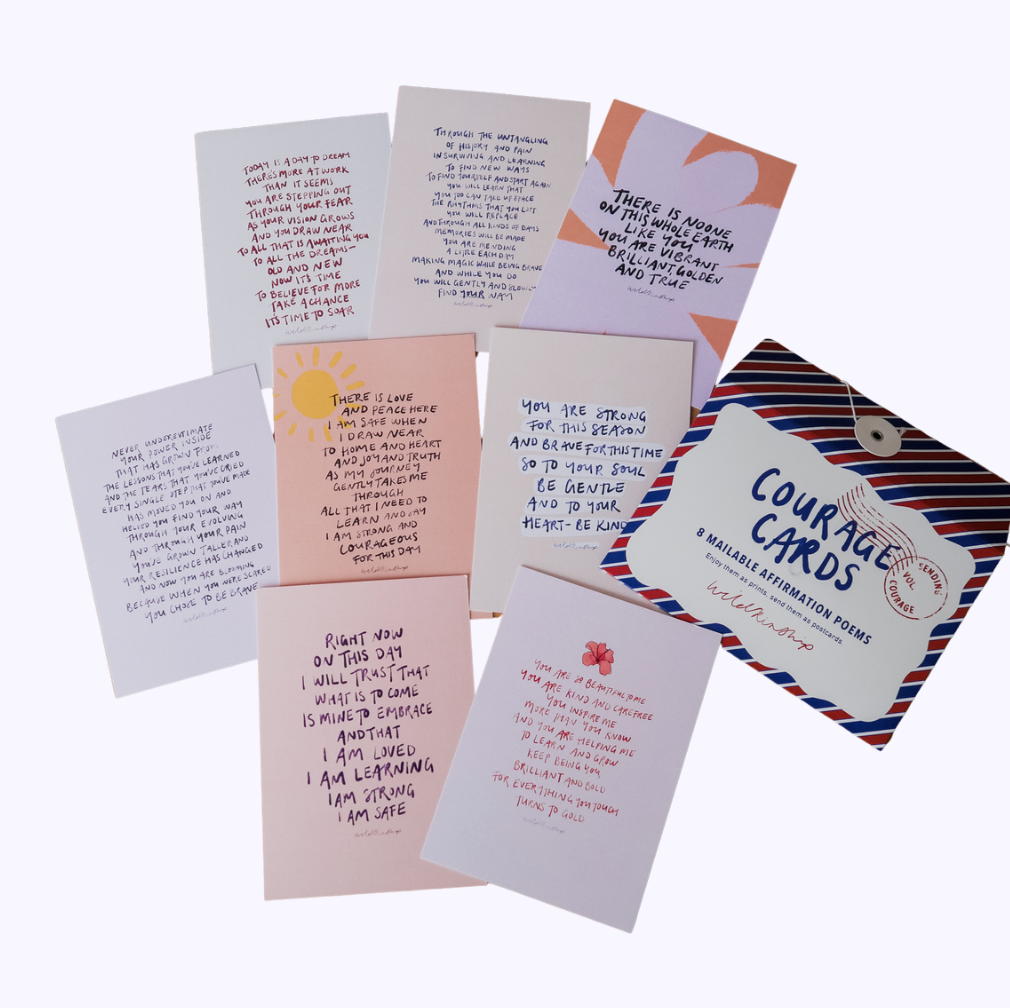 TODAY IS A DAY TO DREAM
THERE'S MORE AT WORK
THAN IT SEEMS
YOU ARE STEPPING OUT
THROUGH YOUR FEAR
AS YOUR VISION GROWS
AND YOU DRAW NEAR
TO ALL THAT IS AWAITING YOU
TO ALL THE DREAMS—
OLD AND NEW
NOW IT'S TIME
TO BELIEVE FOR MORE
TAKE A CHANCE
IT'S TIME TO SOAR
wildkinship
THROUGH THE UNTANGLING
OF HISTORY AND PAIN
IN SURVIVING AND LEARNING
TO FIND NEW WAYS
TO FIND YOURSELF AND START AGAIN
YOU WILL LEARN THAT
YOU TOO CAN TAKE UP SPACE
THE RHYTHMS THAT YOU LOST
YOU WILL REPLACE
AND THROUGH ALL KINDS OF DAYS
MEMORIES WILL BE MADE
YOU ARE MENDING
A LITTLE EACH DAY
MAKING MAGIC WHILE BEING BRAVE
AND WHILE YOU DO
YOU WILL GENTLY AND SLOWLY
FIND YOUR WAY
wildkinship
THERE IS NOONE
ON THIS WHOLE EARTH
LIKE YOU
YOU ARE VIBRANT
BRILLIANT, GOLDEN
AND TRUE
wildkinship
NEVER UNDERESTIMATE
YOUR POWER INSIDE
THAT HAS GROWN FROM
THE LESSONS THAT YOU'VE LEARNED
AND THE TEARS THAT YOU'VE CRIED
EVERY SINGLE STEP THAT YOU'VE MADE
HAS MOVED YOU ON AND
HELPED YOU FIND YOUR WAY
THROUGH YOUR EVOLVING
AND THROUGH YOUR PAIN
YOU'VE GROWN TALLER AND
YOUR RESILIENCE HAS CHANGED
AND NOW YOU ARE BLOOMING
BECAUSE WHEN YOU WERE SCARED
YOU CHOSE TO BE BRAVE
wildkinship
THERE IS LOVE
AND PEACE HERE
I AM SAFE WHEN
I DRAW NEAR
TO HOME AND HEART
AND JOY AND TRUTH
AS MY JOURNEY
GENTLY TAKES ME
THROUGH
ALL THAT I NEED TO
LEARN AND SAY
I AM STRONG AND
COURAGEOUS
FOR THIS DAY
wildkinship
YOU ARE STRONG
FOR THIS SEASON
AND BRAVE FOR THIS TIME
SO TO YOUR SOUL
BE GENTLE
AND TO YOUR
HEART- BE KIND
wildkinship
COURAGE
CARDS
8 MAILABLE AFFIRMATION POEMS
Enjoy them as prints, send them as postcards
wildkinship
SENDING
VOL
COURAGE
RIGHT NOW
ON THIS DAY
I WILL TRUST THAT
WHAT IS TO COME
IS MINE TO EMBRACE
AND THAT
I AM LOVED
I AM LEARNING
I AM STRONG
I AM SAFE
wildkinship
YOU ARE SO BEAUTIFUL TO ME
YOU ARE KIND AND CAREFREE
YOU INSPIRE ME
MORE THAN YOU KNOW
AND YOU ARE HELPING ME
TO LEARN AND GROW
KEEP BEING YOU
BRILLIANT AND BOLD
FOR EVERYTHING YOU TOUCH
TURNS TO GOLD
wildkinship